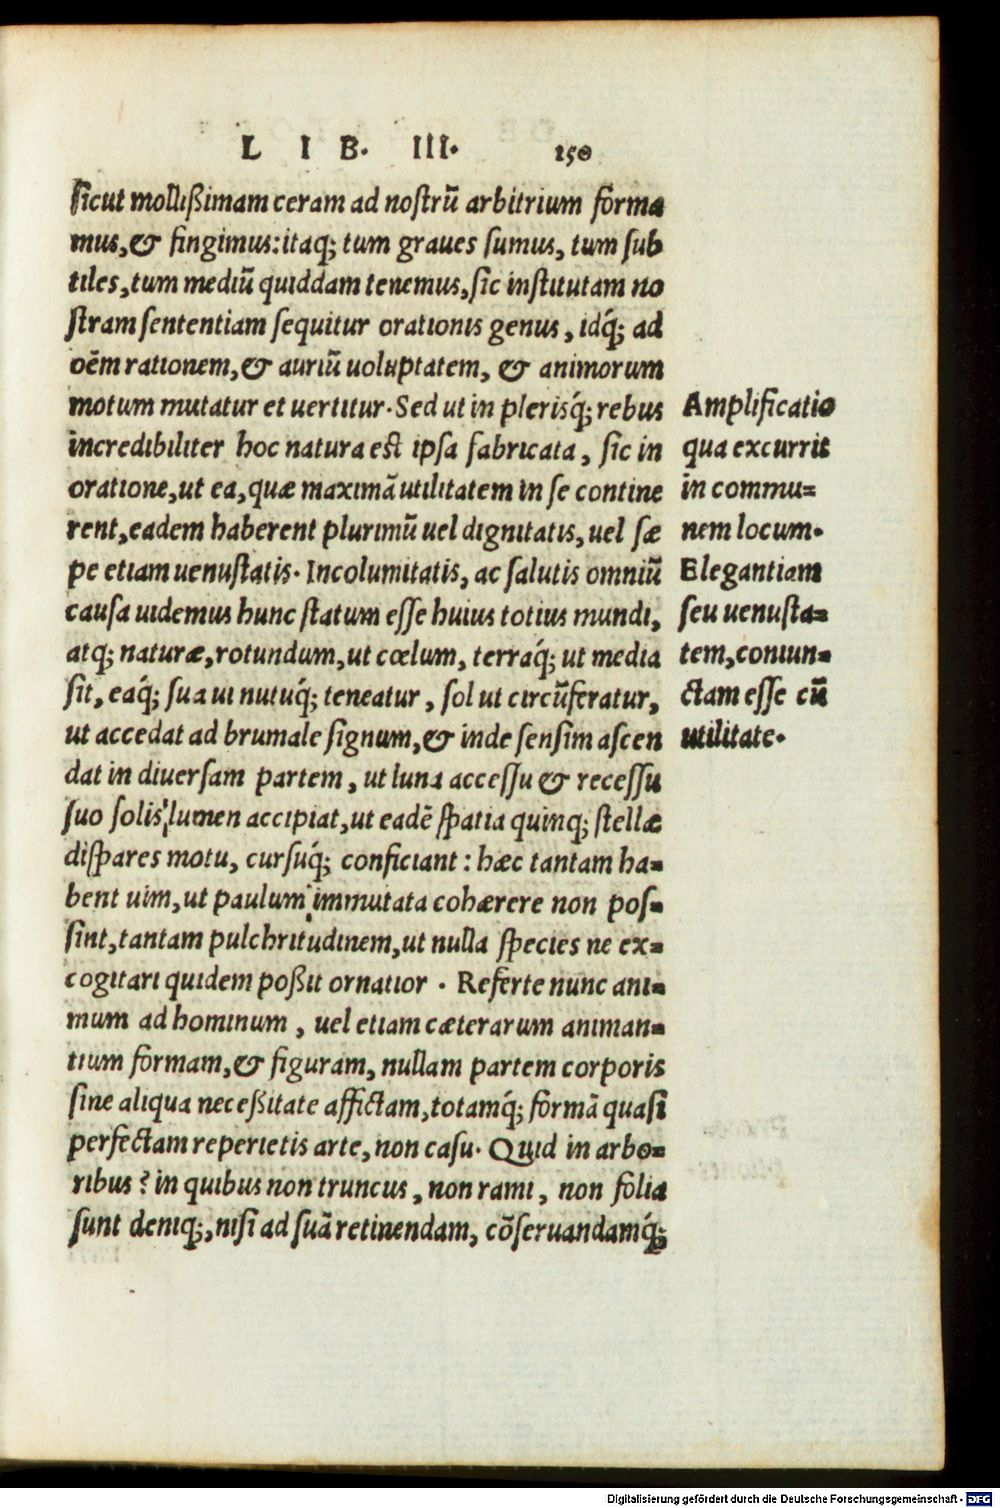 L I B. III. 150
ſicut molliſſimam ceram ad noſtrū arbitrium forma
mus,& fingimus:itaq; tum graues ſumus, tum ſub
tiles,tum mediū quiddam tenemus,ſic inſtitutam no
ſtram ſententiam ſequitur orationis genus, idq́; ad
oēm rationem,& auriū uoluptatem, & animorum
motum mutatur et uertitur. Sed ut in pleriſq́; rebus
incredibiliter hoc natura eſt ipſa fabricata, ſic in
oratione,ut ea,quæ maximā utilitatem in ſe contine
rent,eadem haberent plurimū uel dignitatis,uel ſæ
pe etiam uenuſtatis. Incolumitatis, ac ſalutis omniū
cauſa uidemus hunc ſtatum eſſe huius totius mundi,
atq; naturæ,rotundum,ut cœlum, terraq́; ut media
ſit, eaq́; ſua ui nutuq́; teneatur, ſol ut circūferatur,
ut accedat ad brumale ſignum,& inde ſenſim aſcen
dat in diuerſam partem, ut luna acceſſu & receſſu
ſuo ſolis lumen accipiat,ut eadē ſpatia quinq; ſtellæ
diſpares motu, curſuq́; conficiant : hæc tantam ha=
bent uim,ut paulum immutata cohærere non poſ=
ſint,tantam pulchritudinem,ut nulla ſpecies ne ex=
cogitari quidem poßit ornatior . Referte nunc ani=
mum ad hominum, uel etiam cæterarum animan=
tium formam,& figuram, nullam partem corporis
ſine aliqua neceßitate affictam,totamq́; formā quaſi
perfectam reperietis arte, non caſu. Quid in arbo=
ribus? in quibus non truncus, non rami, non folia
ſunt deniq;,niſi ad ſuā retinendam, cōſeruandamq́;
Amplificatio
qua excurrit
in commu=
nem locum.
Elegantiam
ſeu uenuſta=
tem,coniun=
ctam eſſe cū
utilitate.
Digitalisierung gefördert durch die Deutsche Forschungsgemeinschaft - DFG